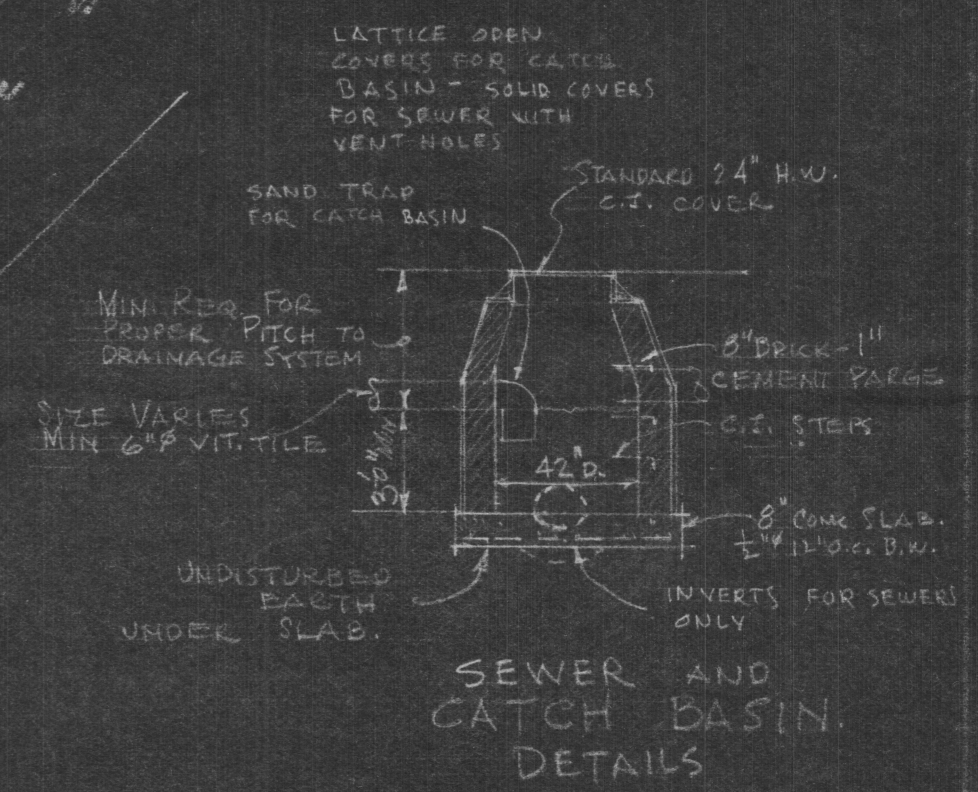 LATTICE OPEN
COVERS FOR CATCH
BASIN - SOLID COVERS
FOR SEWER WITH
VENT HOLES
STANDARD 24" H.W.
C.I. COVER
SAND TRAP
FOR CATCH BASIN
MIN. REQ. FOR
PROPER PITCH TO
DRAINAGE SYSTEM
8" BRICK - 1"
CEMENT PARGE
SIZE VARIES
MIN 6"Ø VIT. TILE
C.I. STEPS
3'0" MIN
42" D.
8" CONC SLAB.
½"Ø 12" O.C. B.W.
UNDISTURBED
EARTH
UNDER SLAB.
INVERTS FOR SEWERS
ONLY
SEWER AND
CATCH BASIN.
DETAILS